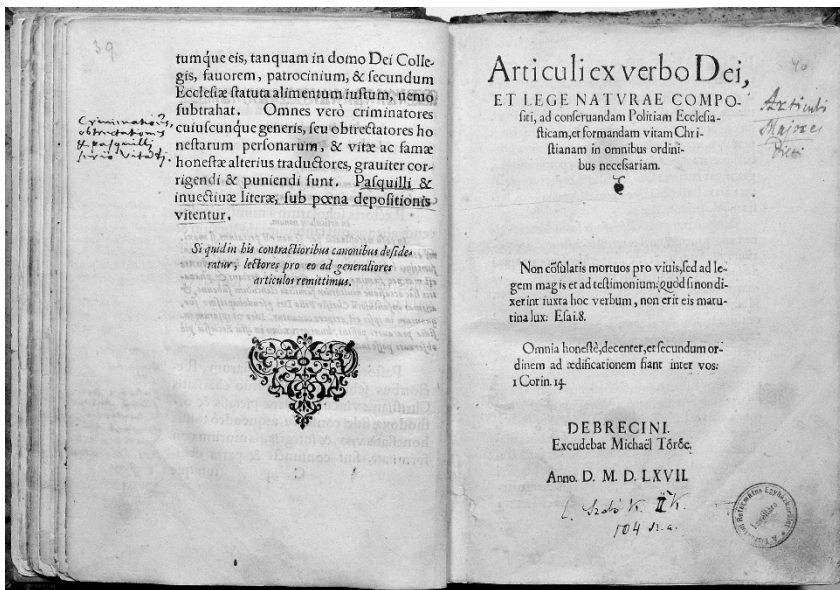 39
tumq́ue eis, tanquam in domo Dei Colle-
gis, fauorem, patrocinium, & ſecundum
Eccleſiæ ſtatuta alimentum iuſtum, nemo
ſubtrahat. Omnes verò criminatores
cuiuſcunque generis, ſeu obtrectatores ho
neſtarum perſonarum, & vitæ ac famæ
honeſtæ alterius traductores, grauiter cor-
rigendi & puniendi ſunt. Paſquilli &
inuectiuæ literæ, ſub pœna depoſitionis
vitentur.
Criminationes,
obtrectationes
& pasquilli
Si quid in his contractioribus canonibus deſide-
ratur, lectores pro eo ad generaliores
articulos remittimus.
40
Articuli ex verbo Dei,
ET LEGE NATVRAE COMPO-
ſiti, ad conſeruandam Politiam Eccleſia-
ſticam, et formandam vitam Chri-
ſtianam in omnibus ordini-
bus neceſſariam.
Articuli
Majores
Non cõſulatis mortuos pro viuis, ſed ad le-
gem magis et ad teſtimonium: quòd ſi non di-
xerint iuxta hoc verbum, non erit eis matu-
tina lux: Eſai. 8.
Omnia honeſtè, decenter, et ſecundum or-
dinem ad ædificationem fiant inter vos:
1 Corin. 14.
DEBRECINI.
Excudebat Michaël Tőrőc.
Anno. D. M. D. LXVII.
Szabó K. II K.
104 sz. a.